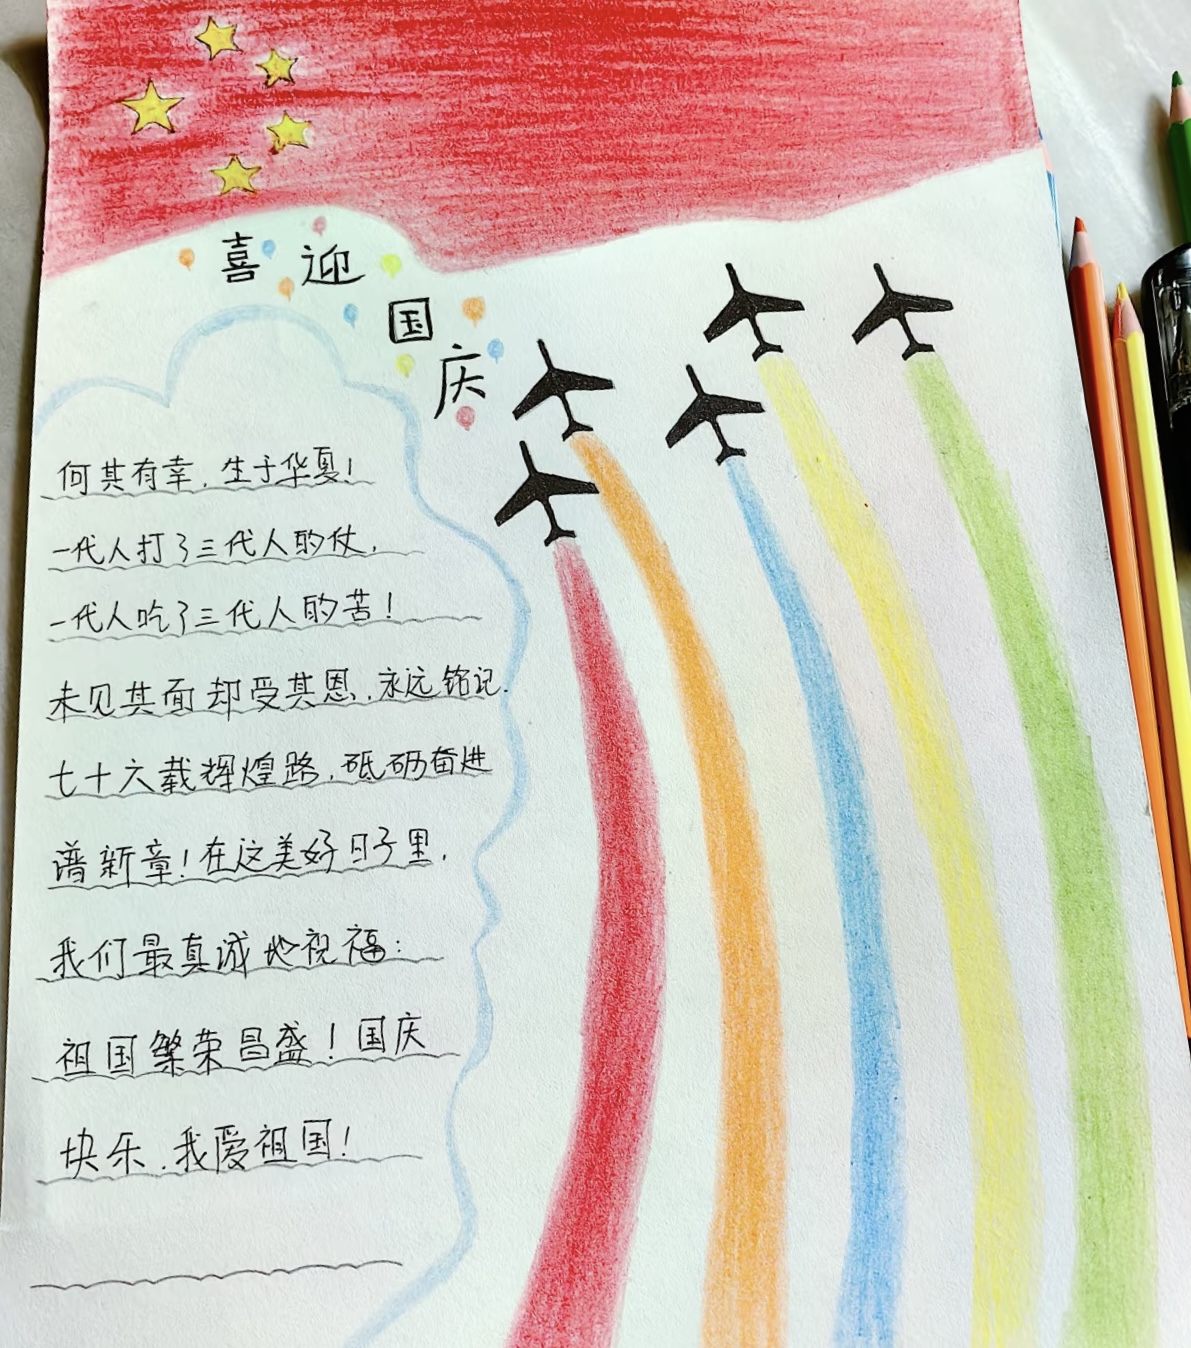 喜迎国庆
何其有幸，生于华夏！
一代人打了三代人的仗，
一代人吃了三代人的苦！
未见其面却受其恩，永远铭记.
七十六载辉煌路，砥砺奋进
谱新章！在这美好日子里，
我们最真诚地祝福：
祖国繁荣昌盛！国庆
快乐，我爱祖国！